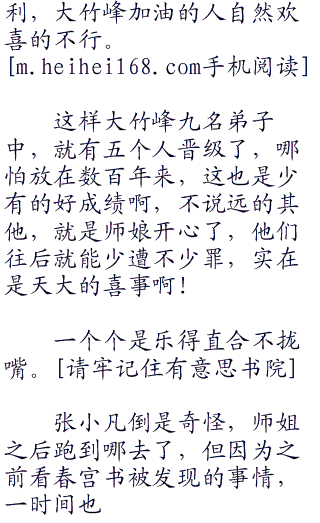 利，大竹峰加油的人自然欢
喜的不行。
[m.heihei168.com手机阅读]
这样大竹峰九名弟子
中，就有五个人晋级了，哪
怕放在数百年来，这也是少
有的好成绩啊，不说远的其
他，就是师娘开心了，他们
往后就能少遭不少罪，实在
是天大的喜事啊！
一个个是乐得直合不拢
嘴。[请牢记住有意思书院]
张小凡倒是奇怪，师姐
之后跑到哪去了，但因为之
前看春宫书被发现的事情，
一时间也